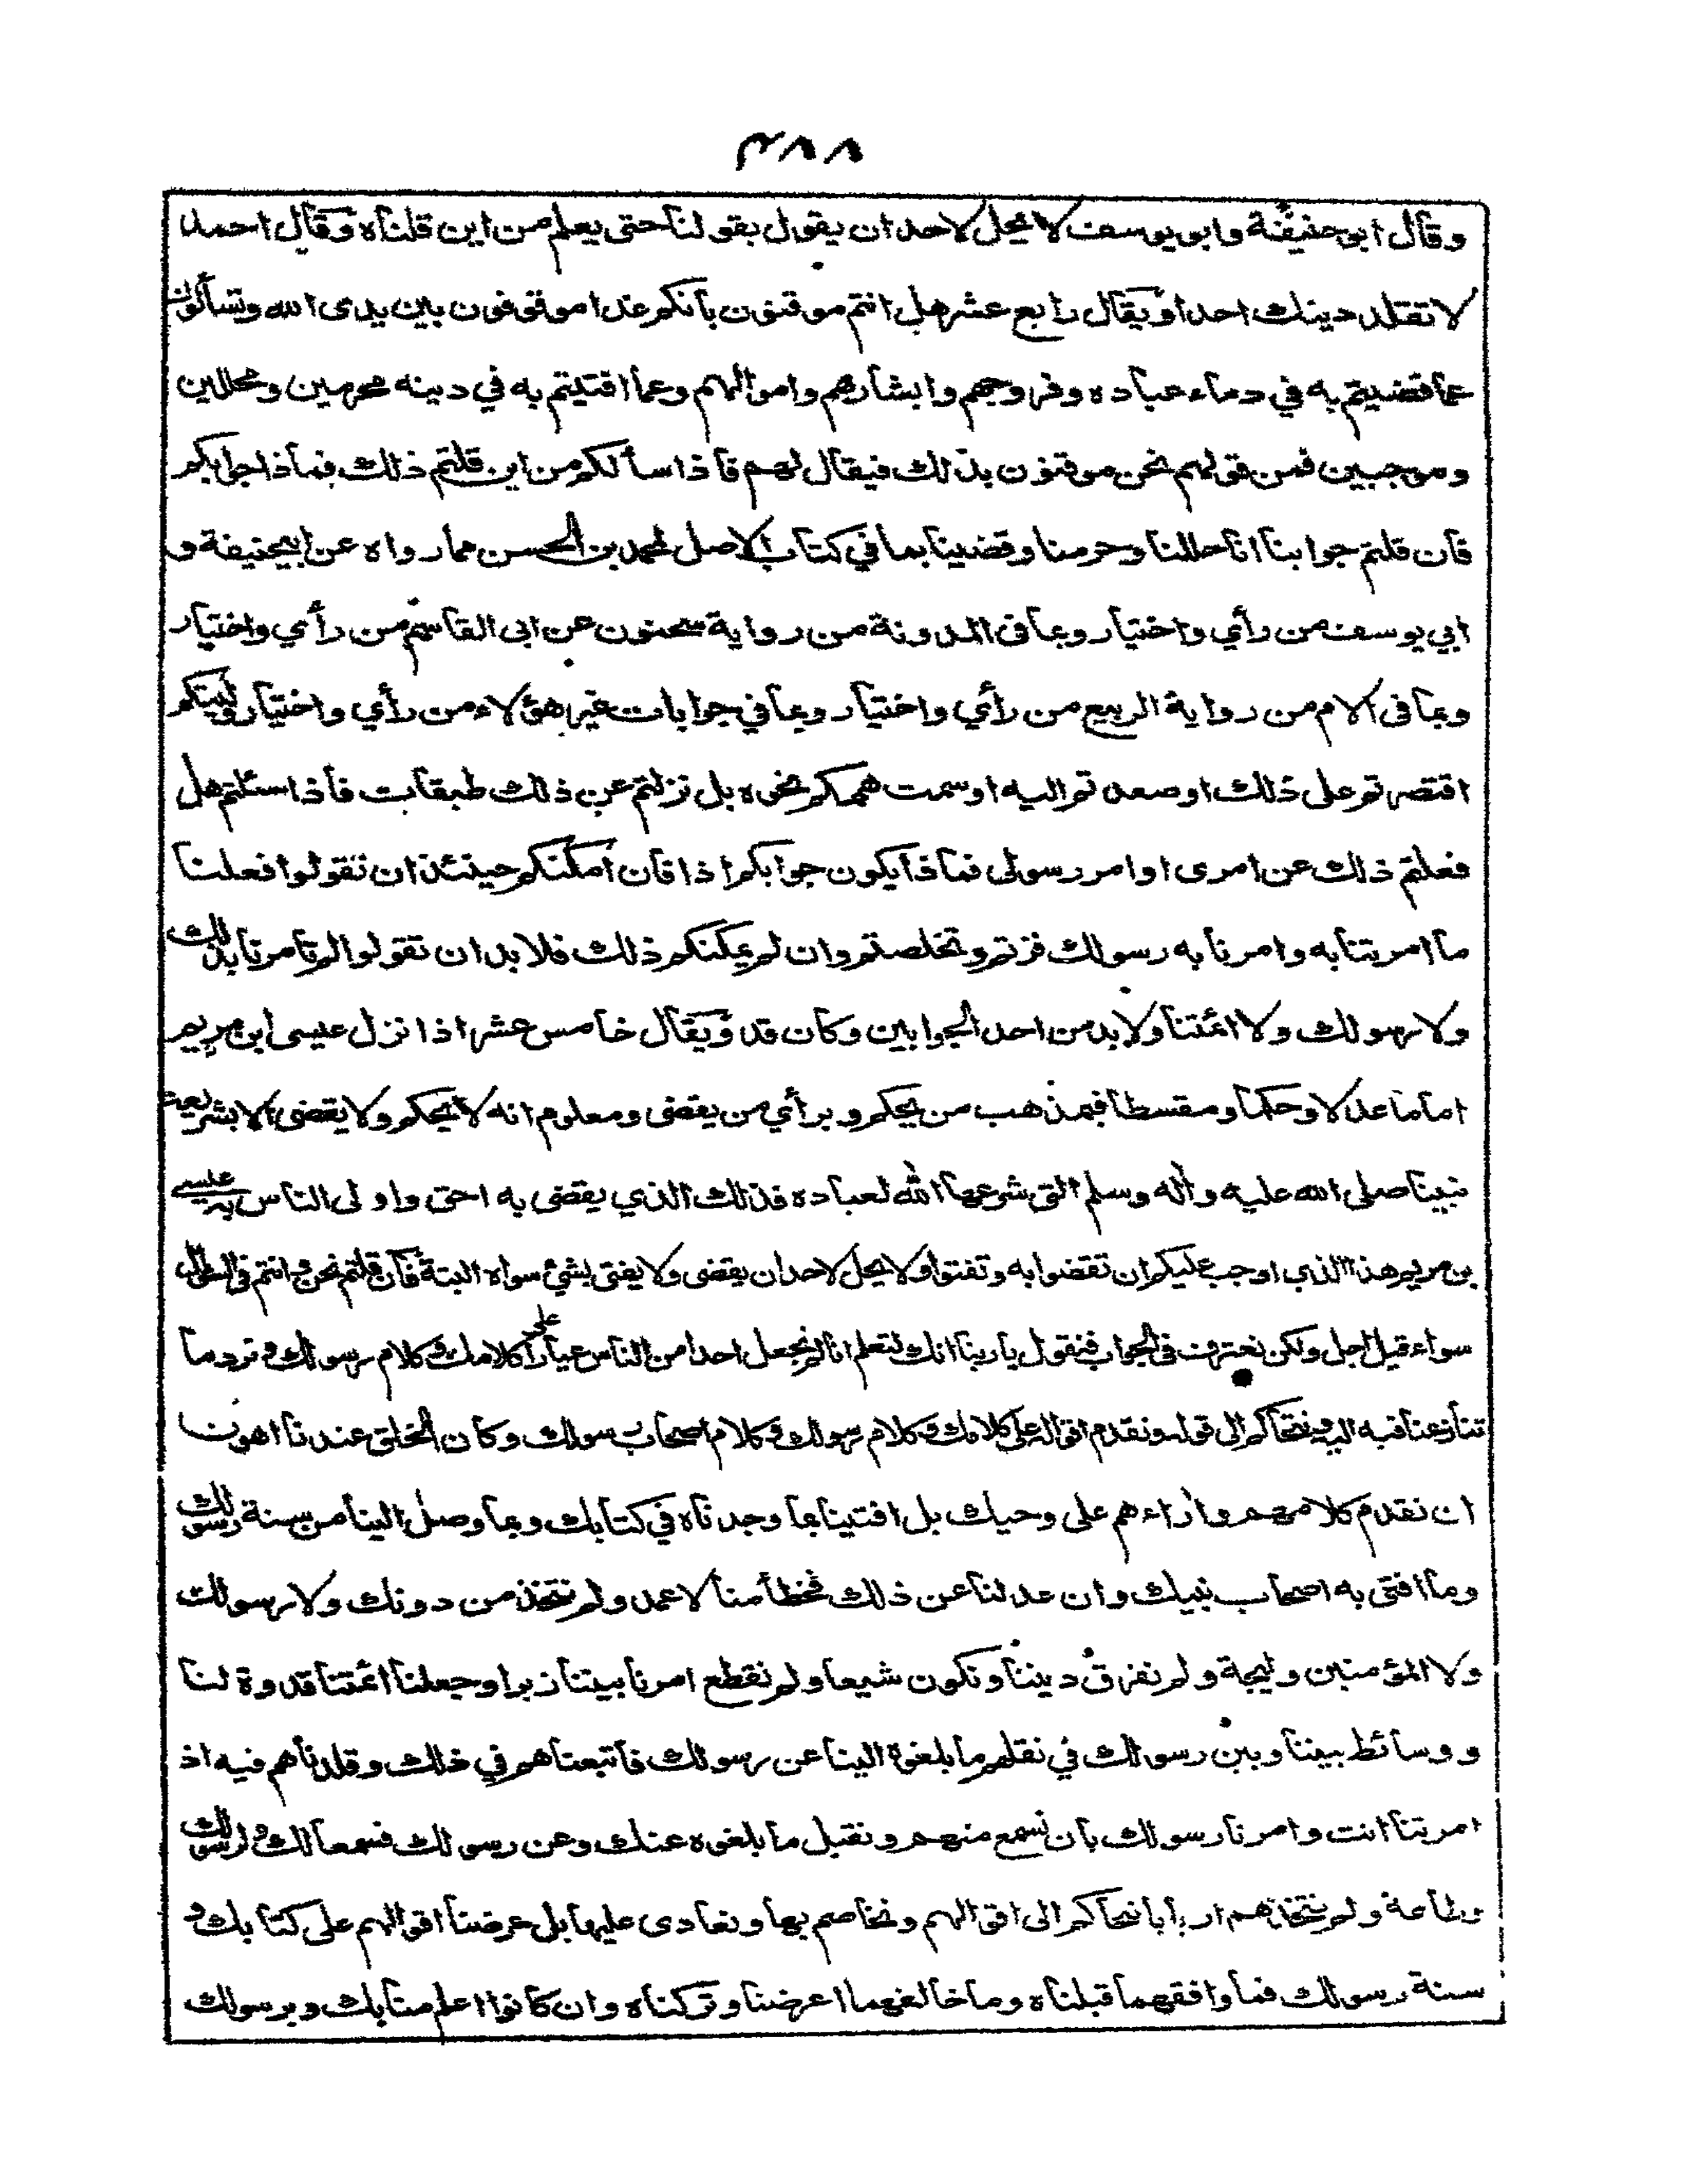 ٣٨٨
وقال ابو حنيفة وابو يوسف لا يحل لاحد ان يقول بقولنا حتى يعلم من اين قلناه وقال احمد
لا تقلد دينك احدا ويقال رابع عشر هل انتم موقنون بانكم غدا موقوفون بين يدى الله وتسألون
عما قضيتم به في دماء عباده وفروجهم وابشارهم واموالهم وعما افتيتم به في دينه محرمين ومحللين
وموجبين فمن قولهم نحن موقنون بذلك فيقال لهم فاذا سألكم من اين قلتم ذلك فماذا جوابكم
فان قلتم جوابنا انا حللنا وحرمنا وقضينا بما في كتاب الاصل لمحمد بن الحسن مما رواه عن ابيحنيفة و
ابي يوسف من رأي واختيار وبما فى المدونة من رواية سحنون عن ابى القاسم من رأي واختيار
وبما فى الام من رواية الربيع من رأي واختيار وبما في جوابات غير هؤلاء من رأي واختيار وليتكم
اقتصرتم على ذلك او صعدتم اليه او سمت هممكم نحوه بل نزلتم عن ذلك طبقات فاذا سئلتم هل
فعلتم ذلك عن امرى او امر رسولى فماذا يكون جوابكم اذا فان امكنكم حينئذ ان تقولوا فعلنا
ما امرتنا به وامرنا به رسولك فزتم وتخلصتم وان لم يمكنكم ذلك فلا بد ان تقولوا لم تامرنا بذلك
ولا رسولك ولا ائمتنا ولا بد من احد الجوابين وكان قد ويقال خامس عشر اذا نزل عيسى ابن مريم
اماما عدلا وحكما ومقسطا فبمذهب من يحكم وبرأي من يقضى ومعلوم انه لا يحكم ولا يقضى الا بشريعة
نبينا صلى الله عليه واله وسلم التى شرعها الله لعباده فذلك الذي يقضى به احق واولى الناس به عيسى
بن مريم هذا الذي اوجب عليكم ان تقضوا به وتفتوا ولا يحل لاحد ان يقضى ولا يفتى بشئ سواه البتة فان قلتم نحن وانتم فى السؤال
سواء قيل اجل ولكن نعترف فى الجواب فنقول يا ربنا انك لتعلم انا لم نجعل احدا من الناس عيارا على كلامك وكلام رسولك ونرد ما
تنازعنا فيه اليه ونتحاكم الى قوله ونقدم اقواله على كلامك وكلام رسولك وكلام اصحاب رسولك وكان الخلق عندنا اهون
ان نقدم كلامهم واراءهم على وحيك بل افتينا بما وجدناه في كتابك وبما وصل الينا من سنة رسولك
وما افتى به اصحاب نبيك وان عدلنا عن ذلك فخطأ منا لا عمد ولم نتخذ من دونك ولا رسولك
ولا المؤمنين وليجة ولم نفرق ديننا ونكون شيعا ولم نقطع امرنا بيننا زبرا وجعلنا ائمتنا قدوة لنا
ووسائط بيننا وبين رسولك في نقلهم ما بلغوه الينا عن رسولك فاتبعناهم في ذلك وقلدناهم فيه اذ
امرتنا انت وامرنا رسولك بان نسمع منهم ونقبل ما بلغوه عنك وعن رسولك فسمعا لك ولرسولك
وطاعة ولم نتخذهم اربابا نتحاكم الى اقوالهم ونخاصم بها ونعادى عليها بل عرضنا اقوالهم على كتابك و
سنة رسولك فما وافقهما قبلناه وما خالفهما اعرضنا وتركناه وان كانوا اعلم منا بك وبرسولك